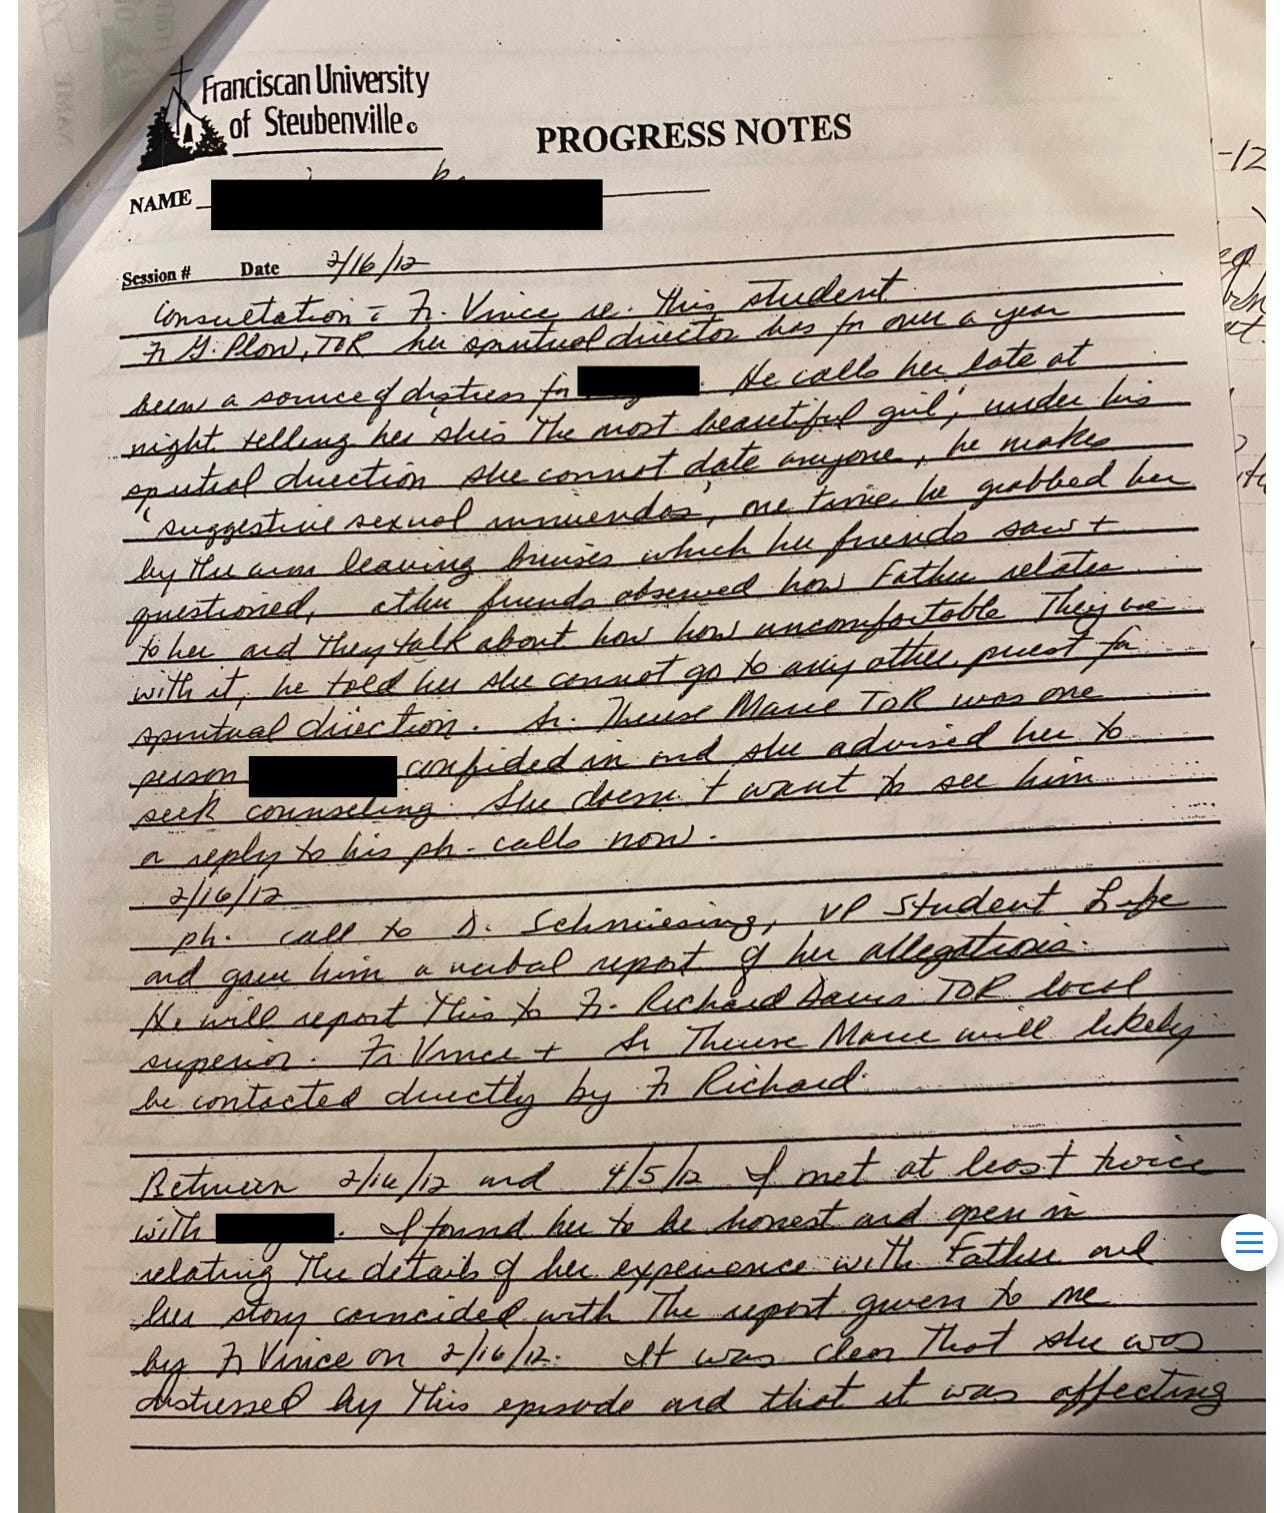 Franciscan University
of Steubenville
PROGRESS NOTES
NAME
Session # Date 2/16/12
Consultation c̄ Fr. Vince re. this student
Fr G. Plow, TOR her spiritual director has for over a year
been a source of distress for . He calls her late at
night telling her she's 'the most beautiful girl', under his
spiritual direction she cannot date anyone, he makes
'suggestive sexual innuendos', one time he grabbed her
by the arm leaving bruises which her friends saw +
questioned, other friends observed how Father relates
to her and they talk about how how uncomfortable they are
with it, he told her she cannot go to any other priest for
spiritual direction. Sr. Therese Marie TOR was one
person confided in and she advised her to
seek counseling. She doesn't want to see him
or reply to his ph. calls now.
2/16/12
ph. call to D. Schmiesing, VP Student Life
and gave him a verbal report of her allegations.
He will report this to Fr. Richard Davis TOR local
superior. Fr. Vince + Sr Therese Marie will likely
be contacted directly by Fr Richard.
Between 2/16/12 and 4/5/12 I met at least twice
with . I found her to be honest and open in
relating the details of her experience with Father and
her story coincided with the report given to me
by Fr Vince on 2/16/12. It was clear that she was
distressed by this episode and that it was affecting
-12